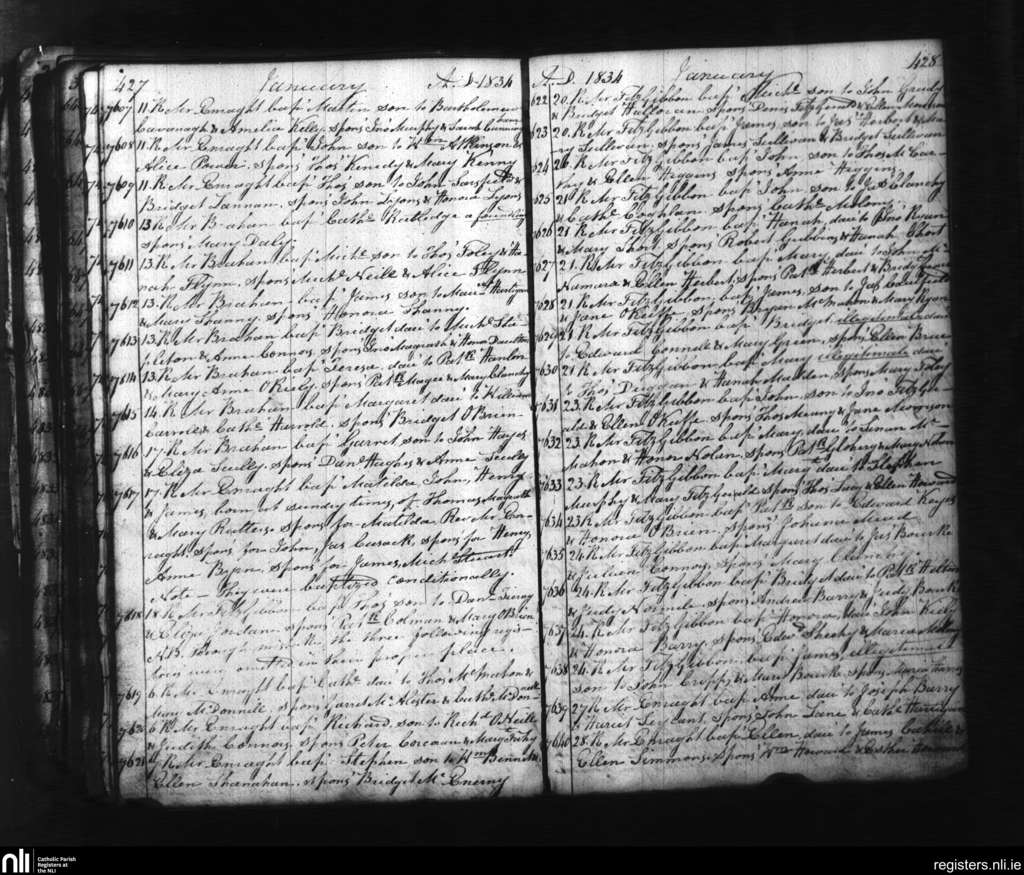 427 January A.D. 1834
7607 11. Rd. Mr. Enraght bap.d Martin son to Bartholomew
Cavanagh & Amelia Kelly. Spons. Jno. Murphy & Sarah
7608 11. Rd. Mr. Enraght bap.d John son to Wm. Atkinson &
Alice Power. spons. Thos. Kennedy & Mary Kenny
7609 11. Rd. Mr. Enraght bap.d Thos. son to John &
Bridget Lannan. spons. John Lyons & Honora Lyons
7610 13. Rd. Mr. Brahan bap.d Cathe. Rutledge a foundling
spons. Mary Daly.
7611 13. Rd. Mr. Brahan bap.d Michl. son to Thos. Foley & Ho-
norah Flynn, spons. Michl. Neill & Alice Flynn
7612 13. Rd. Mr. Brahan bap.d James son to Maur.
& Mary Thanny. spons. Honora Thanny.
7613 13. Rd. Mr. Brahan bap.d Bridget daur. to Michl. Sha-
& Anne Connor, spons. Jno. Magrath & Honor
7614 13. Rd. Mr. Brahan bap.d Teresa daur. to Patk. Hanlon
& Mary Anne O'Kealy. spons. Patk. Magee & Mary Clanchy
7615 14. Rd. Mr. Brahan bap.d Margaret daur. to William
& Cathe. Harrold. spons. Bridget O'Brien.
7616 17. Rd. Mr. Brahan bap.d Garret son to John Hayes
& Eliza Scully. spons. Danl. Hughes & Anne Scully
7617 17. Rd. Mr. Enraght bap.d Matilda, John, Henry
& James, born at sundry times, of Thomas
& Mary Rutters. Spons. for Matilda Rev. Mr. En-
raght spons. for John, Jas. Cusack. spons. for Henry,
Anne Byrn. spons. for James, Michl.
Note - they were baptized conditionally.
7618 18. Rd. Mr. Fitzgibbon bap.d Thos. son to Danl.
& Eliza Jordan. spons. Patk. Colman & Mary O'Brien
N.B. through mistake the three following regis-
ters were omitted in their proper place.
7619 6. Rd. Mr. Enraght bap.d Cathe. daur. to Thos. McMahon &
Mary McDonnell. spons. & Cathe. McDon-
nell
7620 6. Rd. Mr. Enraght bap.d Richard son to Richd. O'Neill
& Judith Connors. Spons. Peter Corcoran & Mary
7621 Rd. Mr. Enraght bap.d Stephen son to Wm. Bennett &
Ellen Shanahan. spons. Bridget McEnerny
A.D. 1834 January 428
622 20. Rd. Mr. Fitzgibbon bap.d Michl. son to John Grady
& Bridget Halloran. Spons. Denis Fitzgerald & Ellen
623 20. Rd. Mr. Fitzgibbon bap.d James, son to Jas. Herbert & Ma-
ry Sullivan. spons. James Sullivan & Bridget Sullivan
624 26. Rd. Mr. Fitzgibbon bap.d John son to Thos. McCar-
thy & Ellen Heggans spons. Anne Heggins.
625 21. Rd. Mr. Fitzgibbon bap.d John son to Jas. Clanchy
& Cathe. Coghlan. spons. Cathe.
7626 21. Rd. Mr. Fitzgibbon bap.d Hanah, daur. to Thos. Ryan
& Mary Short. spons. Robert Gubbins & Hanah Short
7627 21. Rd. Mr. Fitzgibbon bap.d Mary daur. to John Mc
Namara & Ellen Herbert. spons. Patk. Herbert & Bridget
7628 21. Rd. Mr. Fitzgibbon bap.d James, son to Jas. Caulfield
& Jane O'Keeffe. spons. Bryan McMahon & Mary Ryan
7629 21. Rd. Mr. Fitzgibbon bap.d Bridget illegitimate daur.
to Edward & Mary Green, spons. Ellen Brien
7630 21. Rd. Mr. Fitzgibbon bap.d Mary illegitimate daur.
to Thos. Duggan & Hanah Madden. spons. Mary Foley
7631 23. Rd. Mr. Fitzgibbon bap.d John son to Jno. Fitzger-
ald & Ellen O'Keeffe. spons. Thos. & Jane
7632 23. Rd. Mr. Fitzgibbon bap.d Mary daur. to Sinan Mc-
Mahon & Honor Nolan. spons. Patk. & Mary Nolan
7633 23. Rd. Mr. Fitzgibbon bap.d Mary daur. to Stephen
Murphy & Mary Fitzgerald. spons. Thos. & Ellen Howard
7634 23. Rd. Mr. Fitzgibbon bap.d Patk. son to Edward Keyes
& Honora O'Brien. spons. Johana Mead
7635 24. Rd. Mr. Fitzgibbon bap.d Margaret daur. to Jas. Bourke
& Connor, spons. Mary
7636 24. Rd. Mr. Fitzgibbon bap.d Bridget daur. to Patk.
& Judy Normile. spons. Andrew Barry & Judy Bourke
7637 24. Rd. Mr. Fitzgibbon bap.d Honora, daur. to John
& Honora Barry. spons. Edwd. Sheehy & Maria
7638 24. Rd. Mr. Fitzgibbon bap.d James, illegitimate
son to John Cripps & Mary Bourke. spons. Maria
7639 27. Rd. Mr. Enraght bap.d Anne daur. to Joseph Barry
& Hariet Seylant. Spons. John Lane & Cathe.
7640 28. Rd. Mr. Enraght bap.d Ellen, daur. to James Cahill &
Ellen Simmons. spons. Wm. Howard & Esther
nli Catholic Parish
Registers at
the NLI
registers.nli.ie